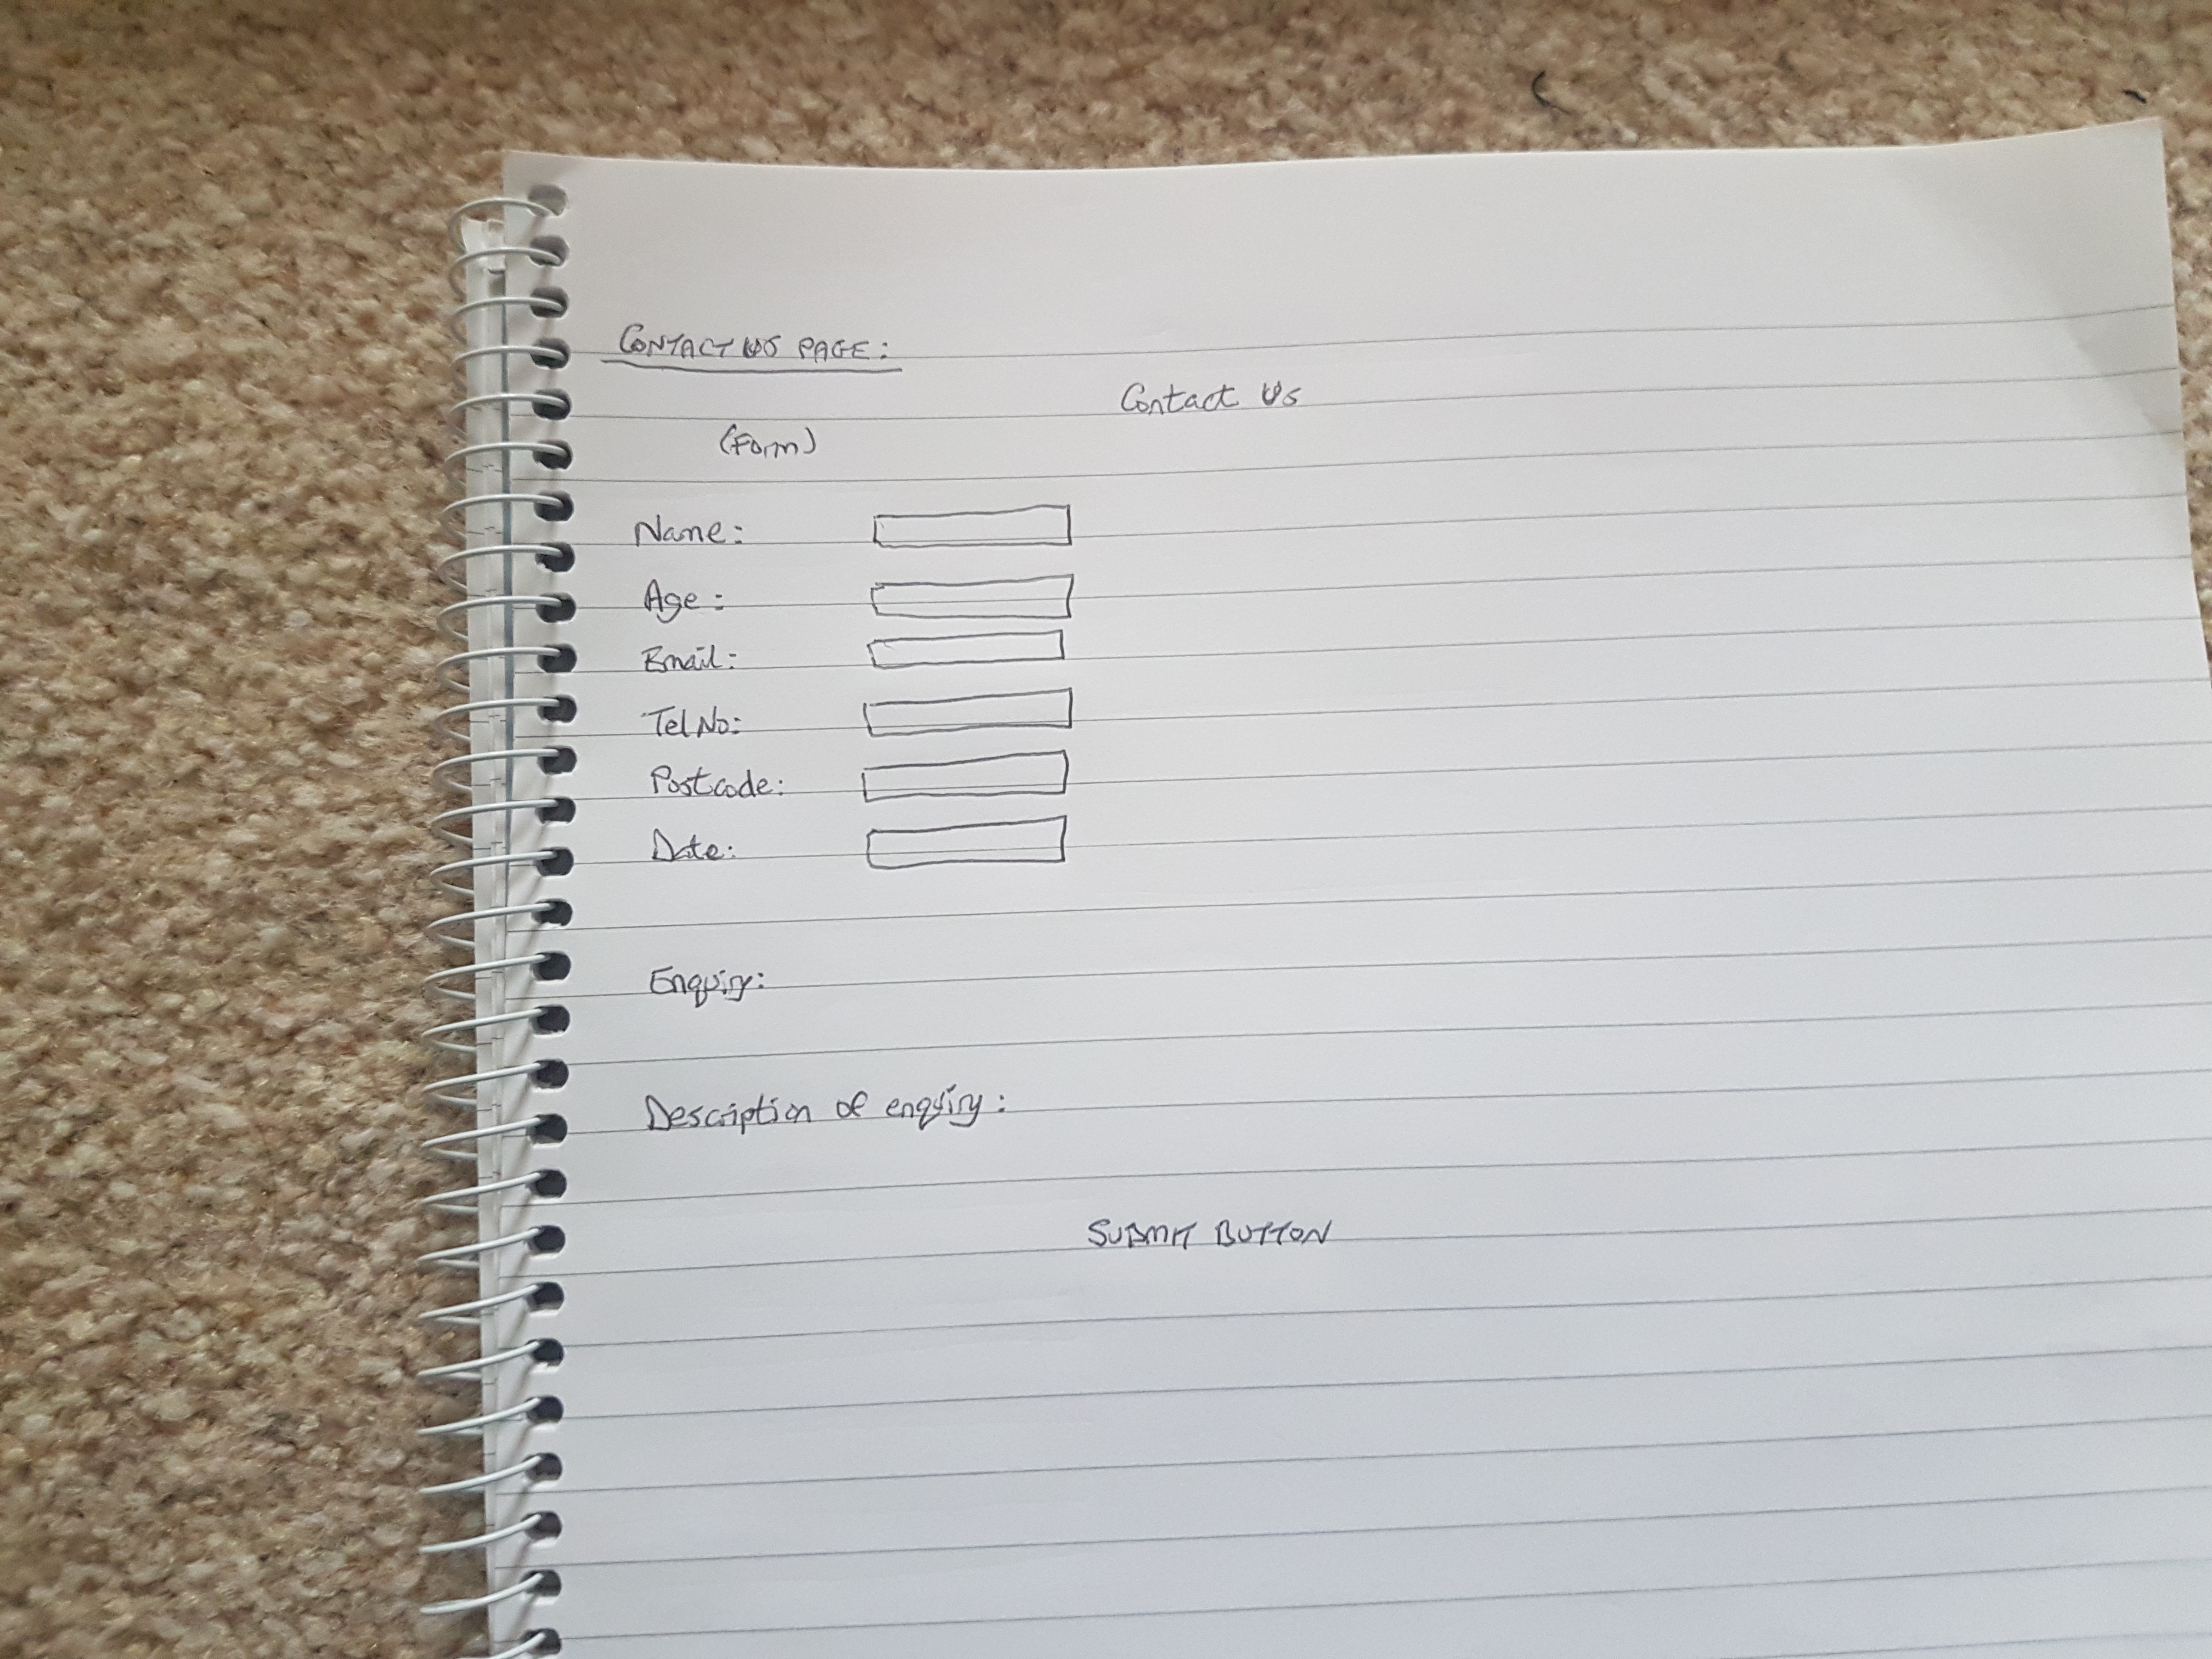 CONTACT US PAGE:
Contact Us
(Form)
Name:
Age:
Email:
Tel No:
Postcode:
Date:
Enquiry:
Description of enquiry:
SUBMIT BUTTON